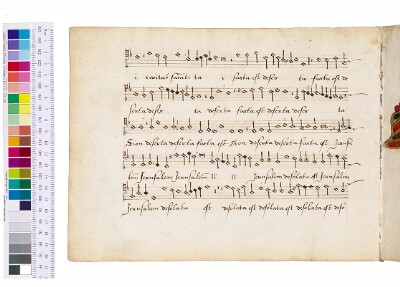 i civitas sancti tu i facta est deser ta facta est de
serta deser ta deserta facta est deserta deser ta
Sion deserta deserta facta est Sion deserta deserta facta est Jeru
lem Jerusalem Jerusalem Jerusalem desolata est Jerusalem
Jerusalem desolata est desolata est desolata est desolata est deso